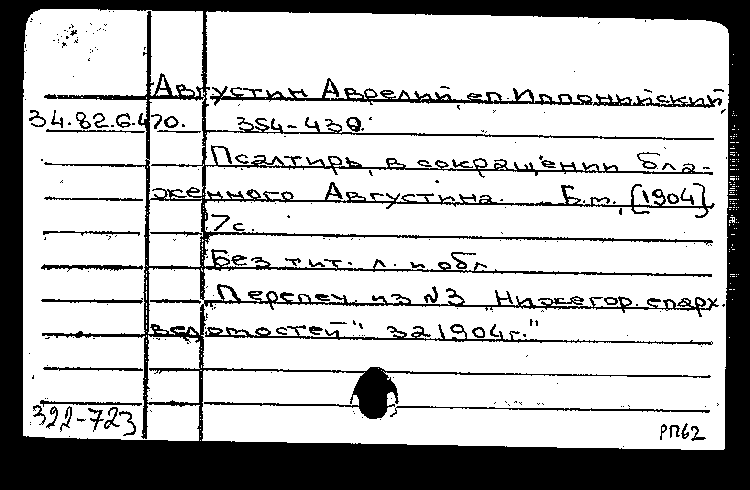 Августин Аврелий, еп. Иппонийский,
34.82.6.470. 354-430.
Псалтирь, в сокращении бла-
женного Августина. Б.м., [1904]
7с.
Без тит. л. и обл.
"Перепеч. из №3 "Нижегор. епарх.
ведомостей" за 1904г."
322-723
РП62